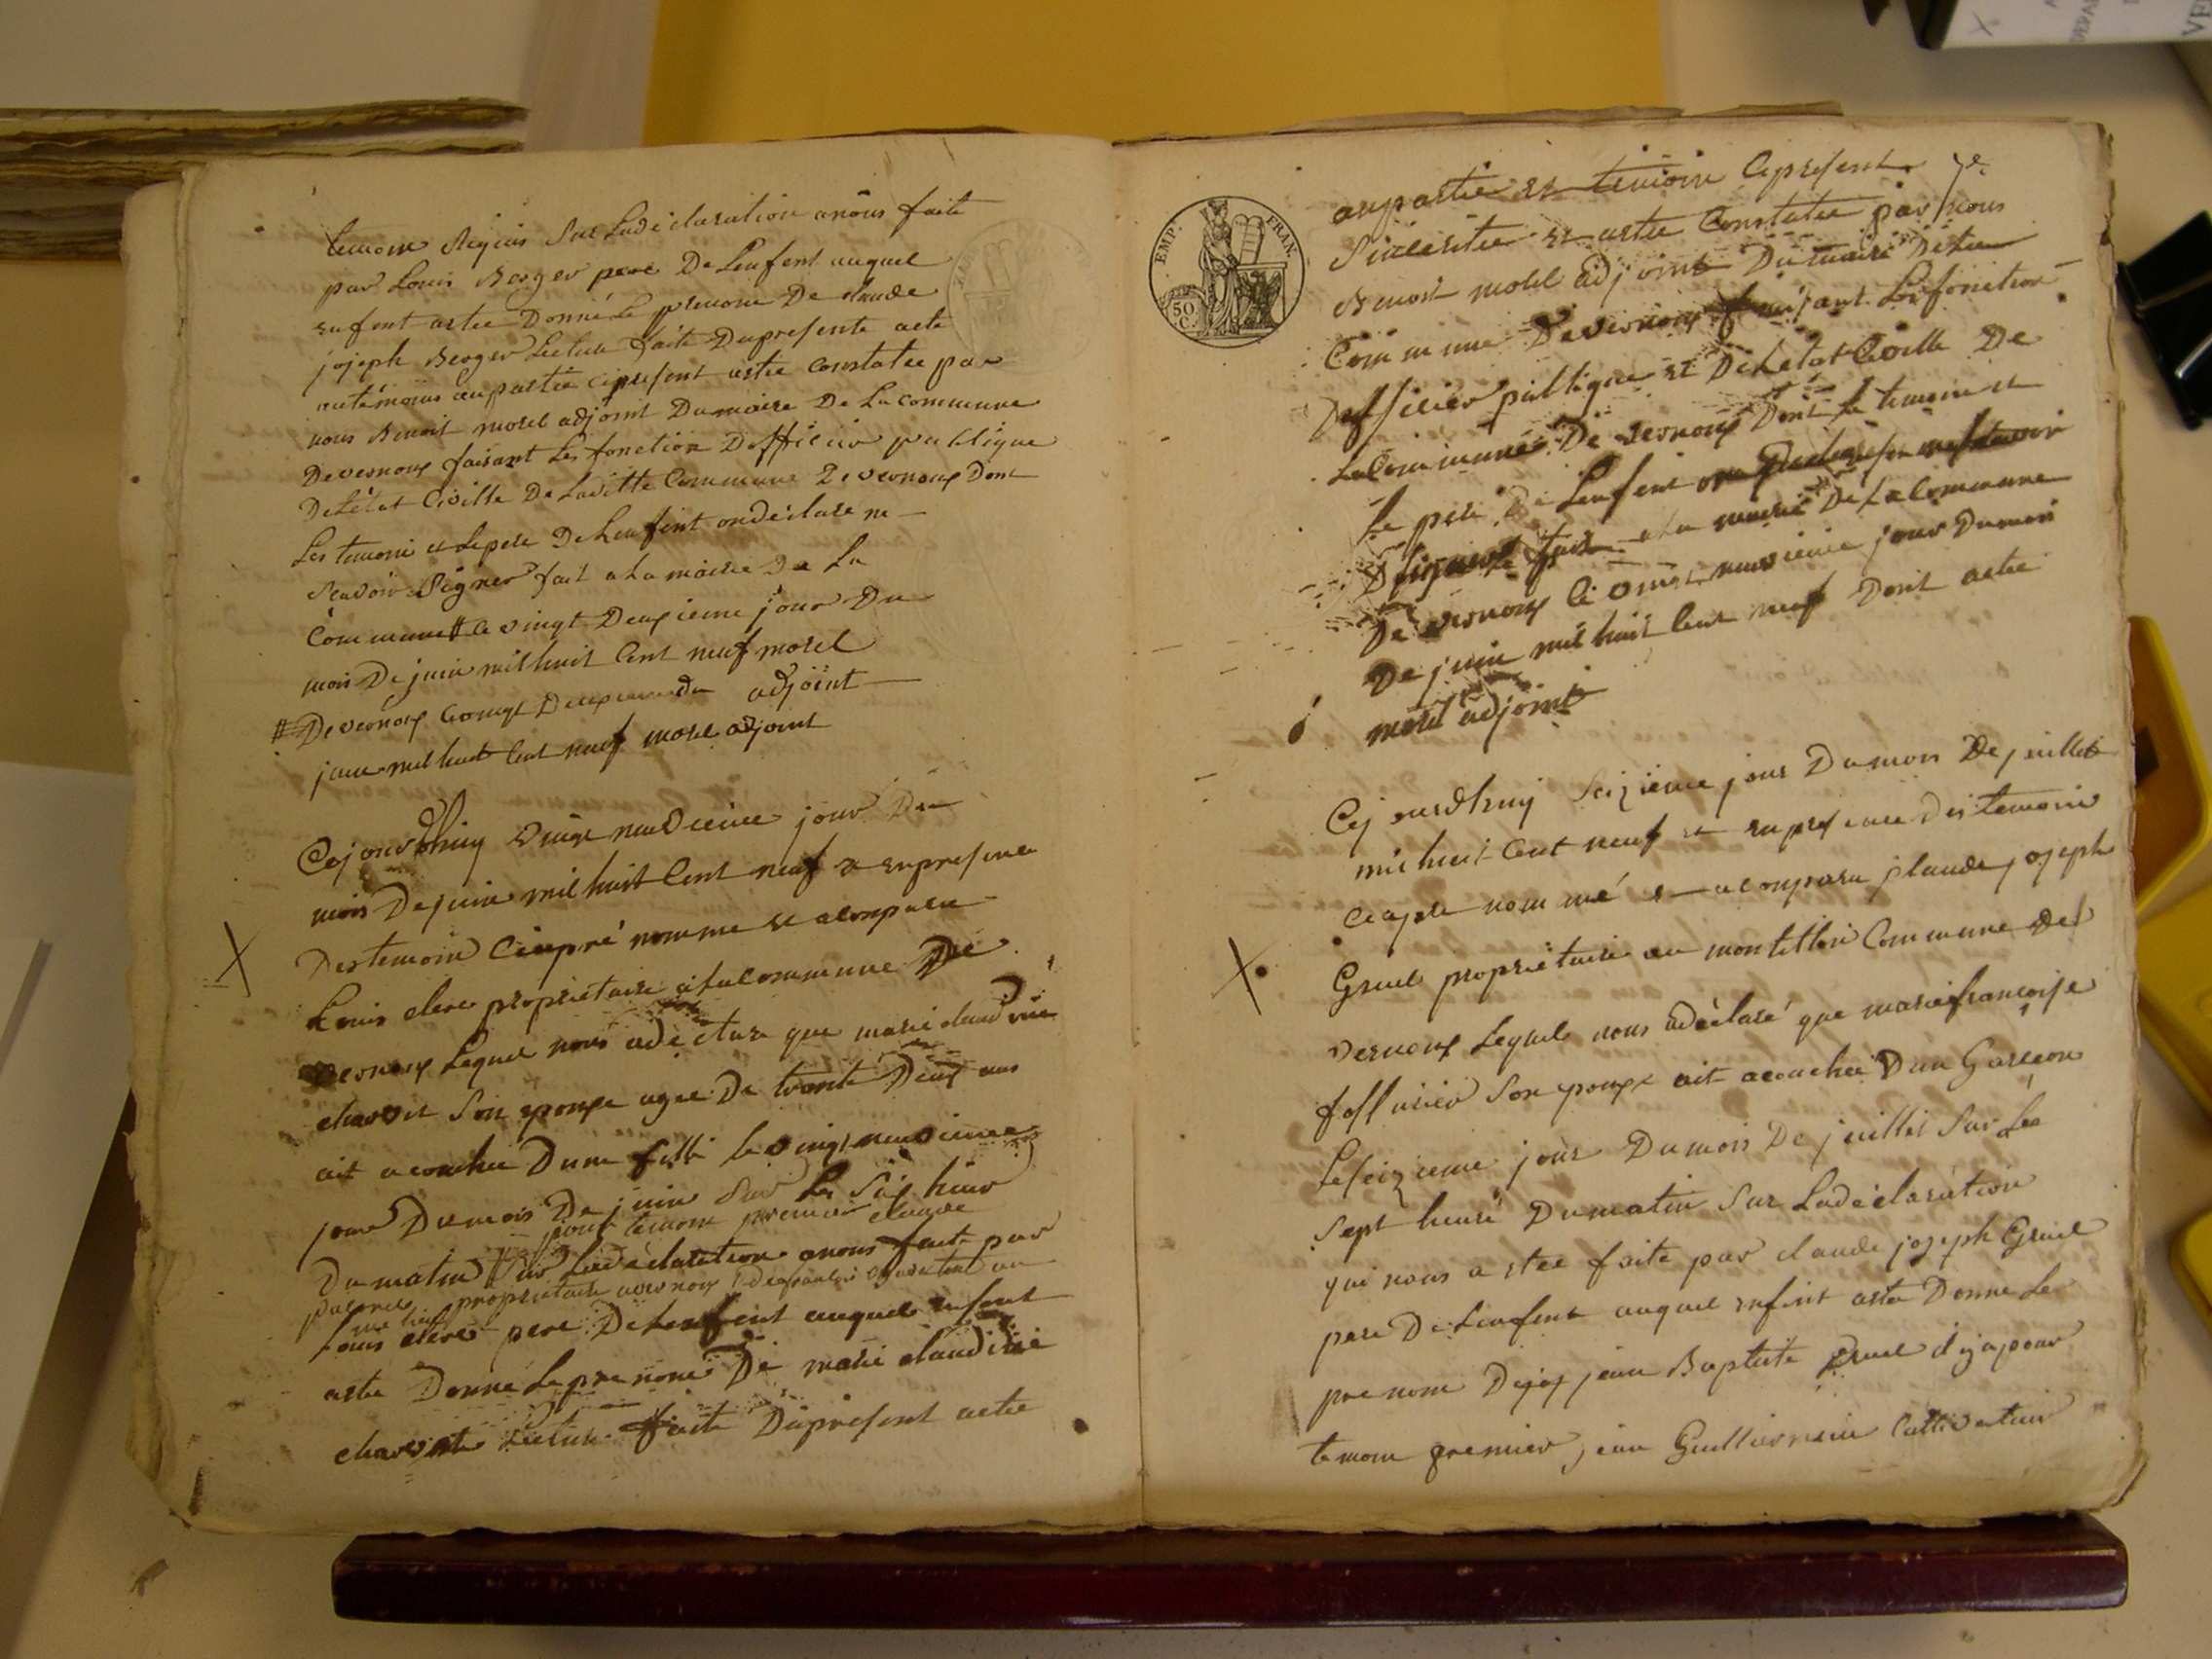 temoin Requis Sur La déclaration anous faite
par Louis Berger pere De Lenfent auquel
enfent astee Donné Le prenom De claude
joseph Berger Lecture faite Dupresente acte
autémoins aupartie cipresent astee constatee par
nous Benoit morel adjoint Dumaire De La commune
Devernoux faisant Les fonction Dofficier publique
De Létat Civille De Laditte Commune Devernoux Dont
Les temoin et Lepere De Lenfent ondéclare ne
scavoir Signer fait ala mairie De La
Commune # le vingt Deuxieme jour Du
mois De juin mil huit Cent neuf morel
# Devernoux levingt Deuxieme Du adjoint
juin mil huit Cent neuf morel adjoint
Cejourdhuy vingt neuvieme jour Du
mois De juin mil huit Cent neuf et enpresence
Des temoin Ciapré nomme et acomparu
Louis clere propriétaire a la commune De
vernoux Lequel nous adeclare que marie claudine
charvet Son epouse agee De trante Deux ans
ait acouchée Dune fille le vingt neuvieme
jour Dumois De juin Sur Les Six heur
jour temoin premier claude
Du matin Sur La déclaration anous faite par
propriétaire avernoux
Louis clere pere De Lenfent auquel enfent
astee Donné Leprenom De marie claudine
charvet Lecture faite Dupresent actee
EMP. FRAN.
50 C.
aupartie et temoin Cipresent
Sinceritee et astee Constatee par nous
Benoit morel adjoint Dumaire Detee
Commune Devernoux faisant Les fonction
Dofficier publique et De Letat Civille De
La Commune De vernoux Dont Le temoin et
Le pere De Lenfent
fait a la mairie De La Commune
De vernoux Le vingt neuvieme jour Dumois
De juin mil huit Cent neuf Dont actee
morel adjoint
Cejourdhuy Seizieme jour Dumois De juillet
mil huit Cent neuf et enpresence Des temoin
Ciapre nommé et acomparu claude joseph
Gruel propriétaire au montellier Commune De
vernoux Lequel nous adéclaré que marie françoise
Son epouse ait acouchée Dun Garcon
Le Seizieme jour Dumois De juillet Sur Les
Sept heure Dumatin Sur La déclaration
qui nous a etee faite par claude joseph Gruel
pere De Lenfent auquel enfent astee Donne Le
pre nom De jean Baptiste Gruel
temoin premier jean Guillermin Cultivateur